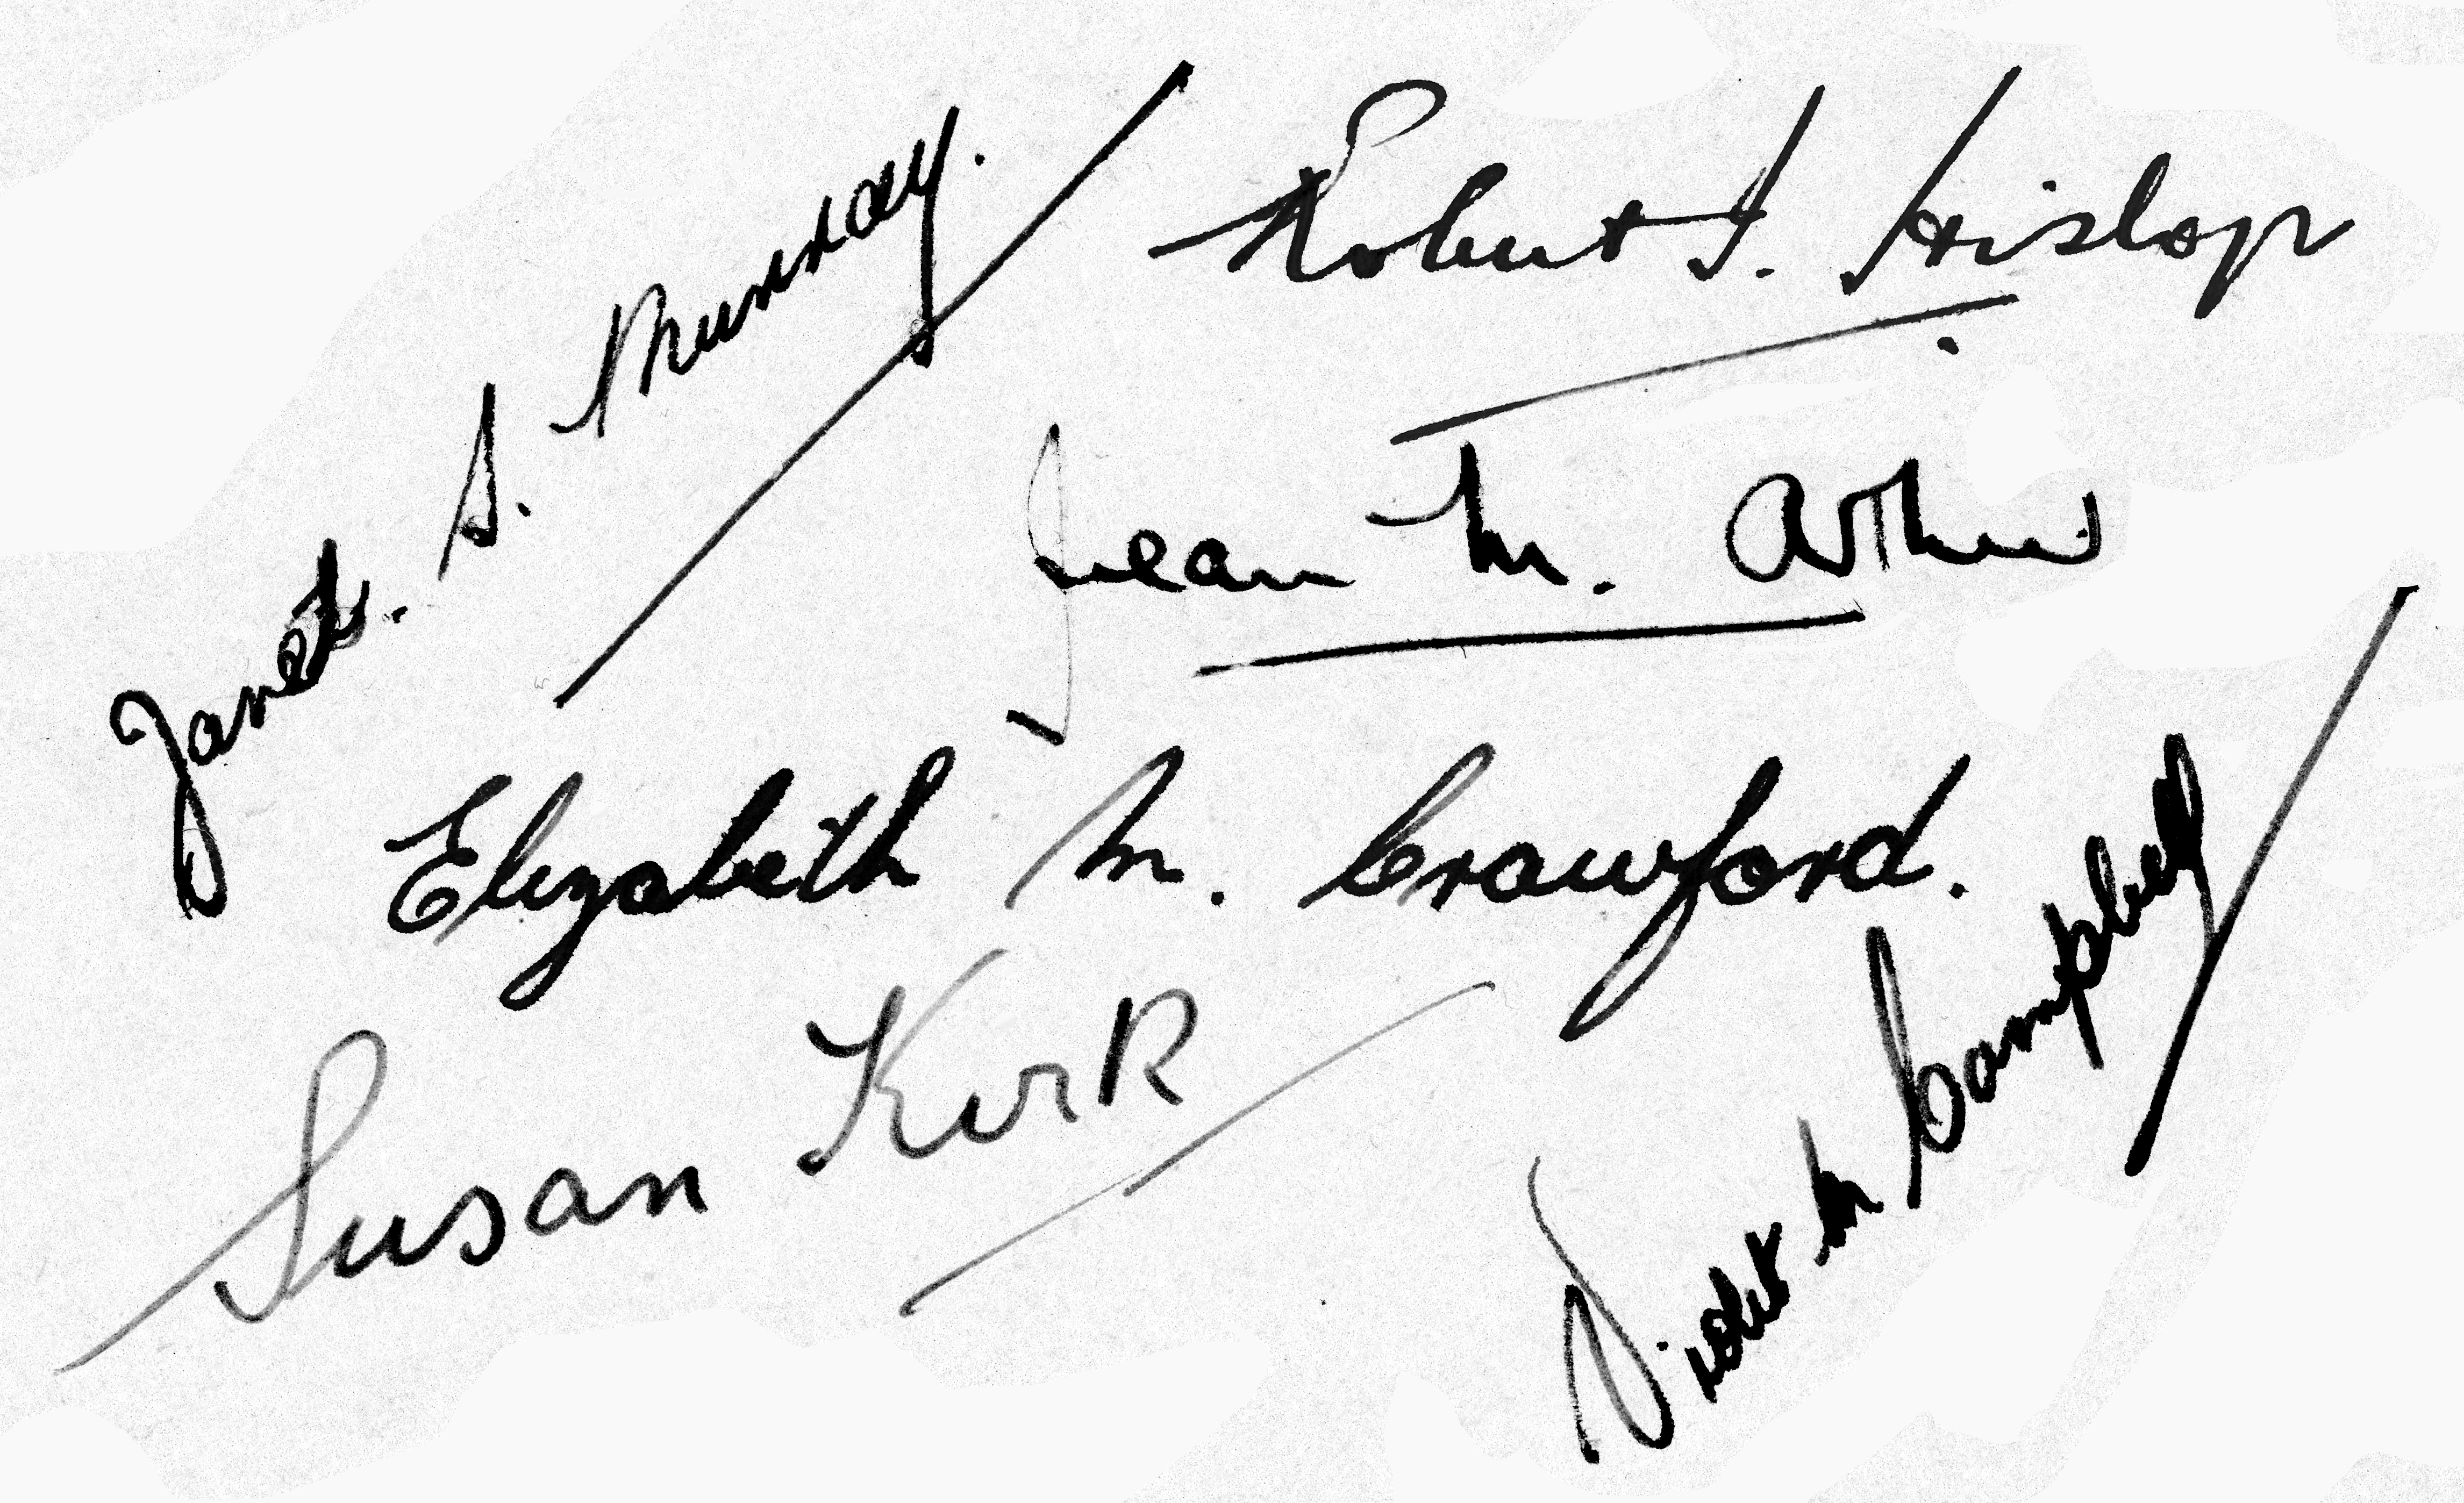 Janet. S. Murray.
Robert J. Hislop
Jean M. Arthur
Elizabeth M. Crawford.
Susan Kirk
Violet M Campbell